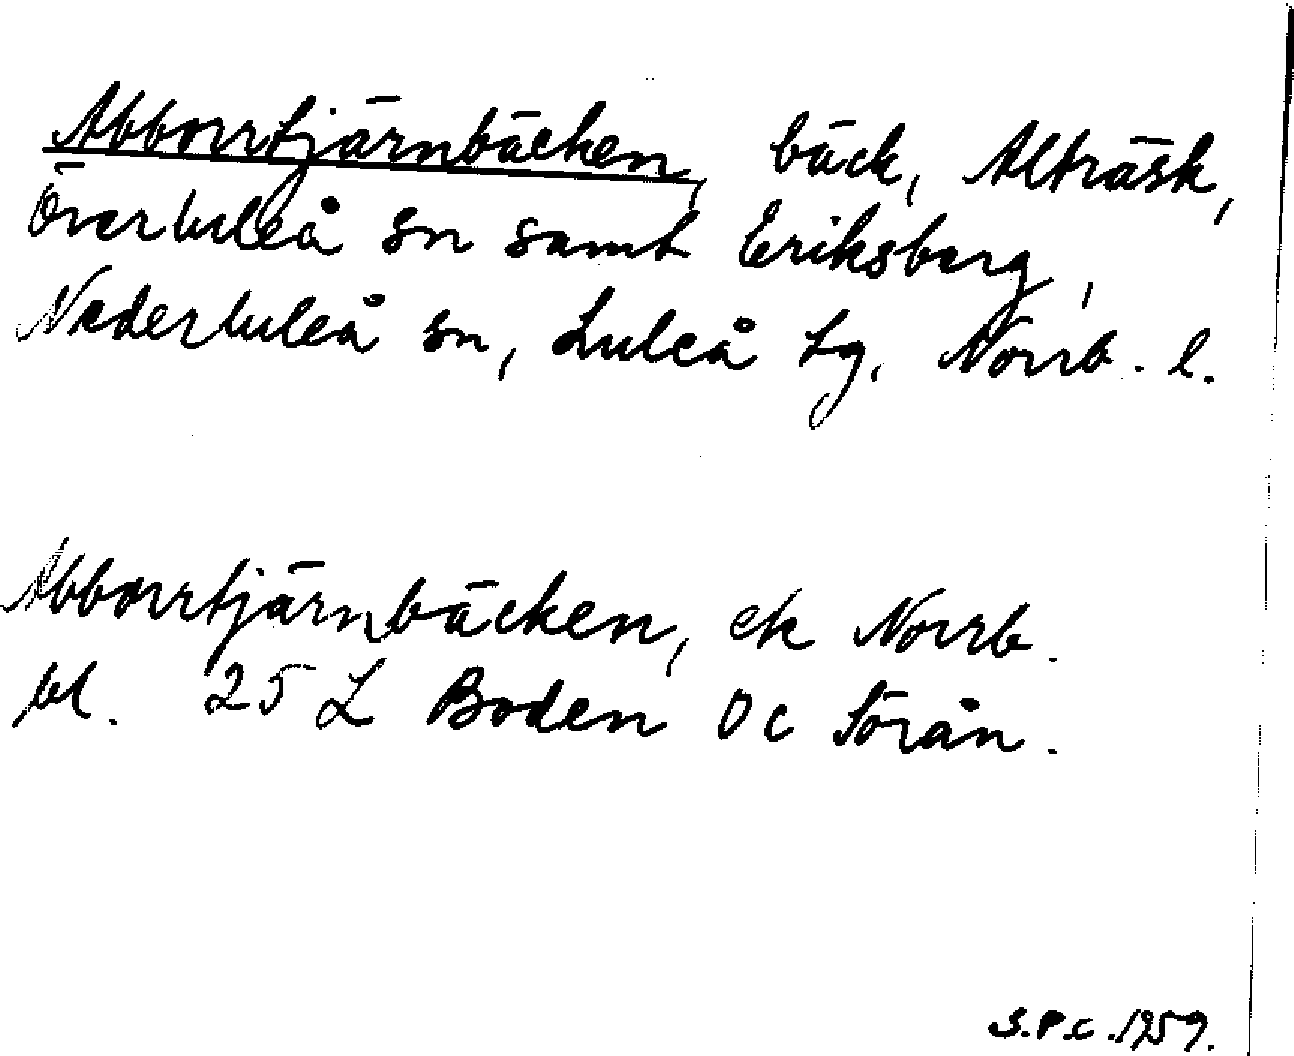 Abborrtjärnbäcken, bäck, Alträsk,
Överluleå sn samt Eriksberg,
Nederluleå sn, Luleå tg, Norrb. l.
Abborrtjärnbäcken, ek Norrb.
bl. 25 L Boden 0 c Sörån.
S.P.C. 1959.